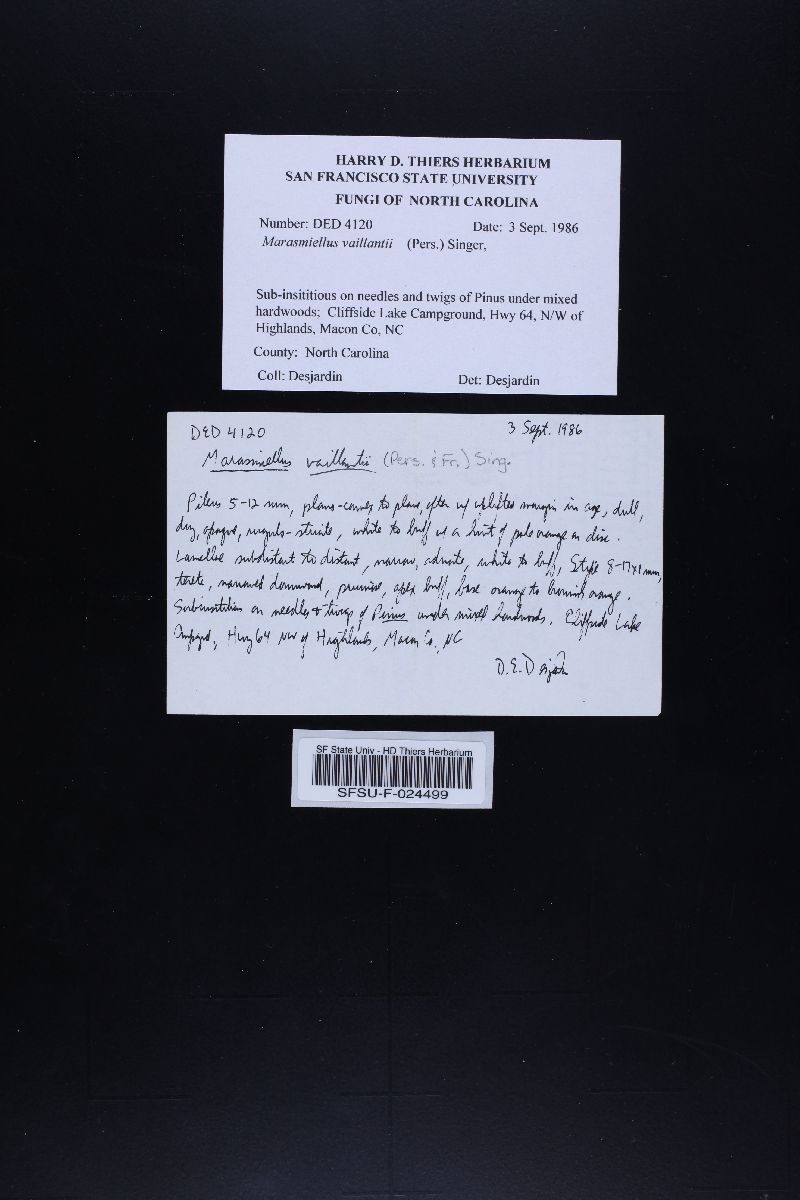 HARRY D. THIERS HERBARIUM
SAN FRANCISCO STATE UNIVERSITY
FUNGI OF NORTH CAROLINA
Number: DED 4120 Date: 3 Sept. 1986
Marasmiellus vaillantii (Pers.) Singer,
Sub-insititious on needles and twigs of Pinus under mixed
hardwoods; Cliffside Lake Campground, Hwy 64, N/W of
Highlands, Macon Co, NC
County: North Carolina
Coll: Desjardin Det: Desjardin
DED 4120 3 Sept. 1986
Marasmiellus vaillantii (Pers. & Fr.) Sing.
Pileus 5-12 mm, plano-convex to plane, often w/ uplifted margin in age, dull,
dry, opaque, rugulo-striate, white to buff w a hint of pale orange on disc.
Lamellae subdistant to distant, narrow, adnate, white to buff, Stipe 8-17x1 mm,
terete, narrowed downward, pruinose, apex buff, base orange to brownish orange.
Subinsititious on needles & twigs of Pinus under mixed hardwoods. Cliffside Lake
Cmpgrd, Hwy 64 NW of Highlands, Macon Co., NC
D.E. Desjardin
SF State Univ - HD Thiers Herbarium
SFSU-F-024499